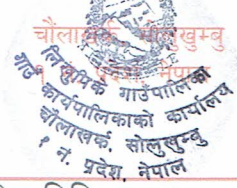 चौंलाखर्क, सोलुखुम्बु
१ नं. प्रदेश, नेपाल
गाउँपालिका
गाउँ कार्यपालिकाको कार्यालय
चौंलाखर्क, सोलुखुम्बु
१ नं. प्रदेश, नेपाल